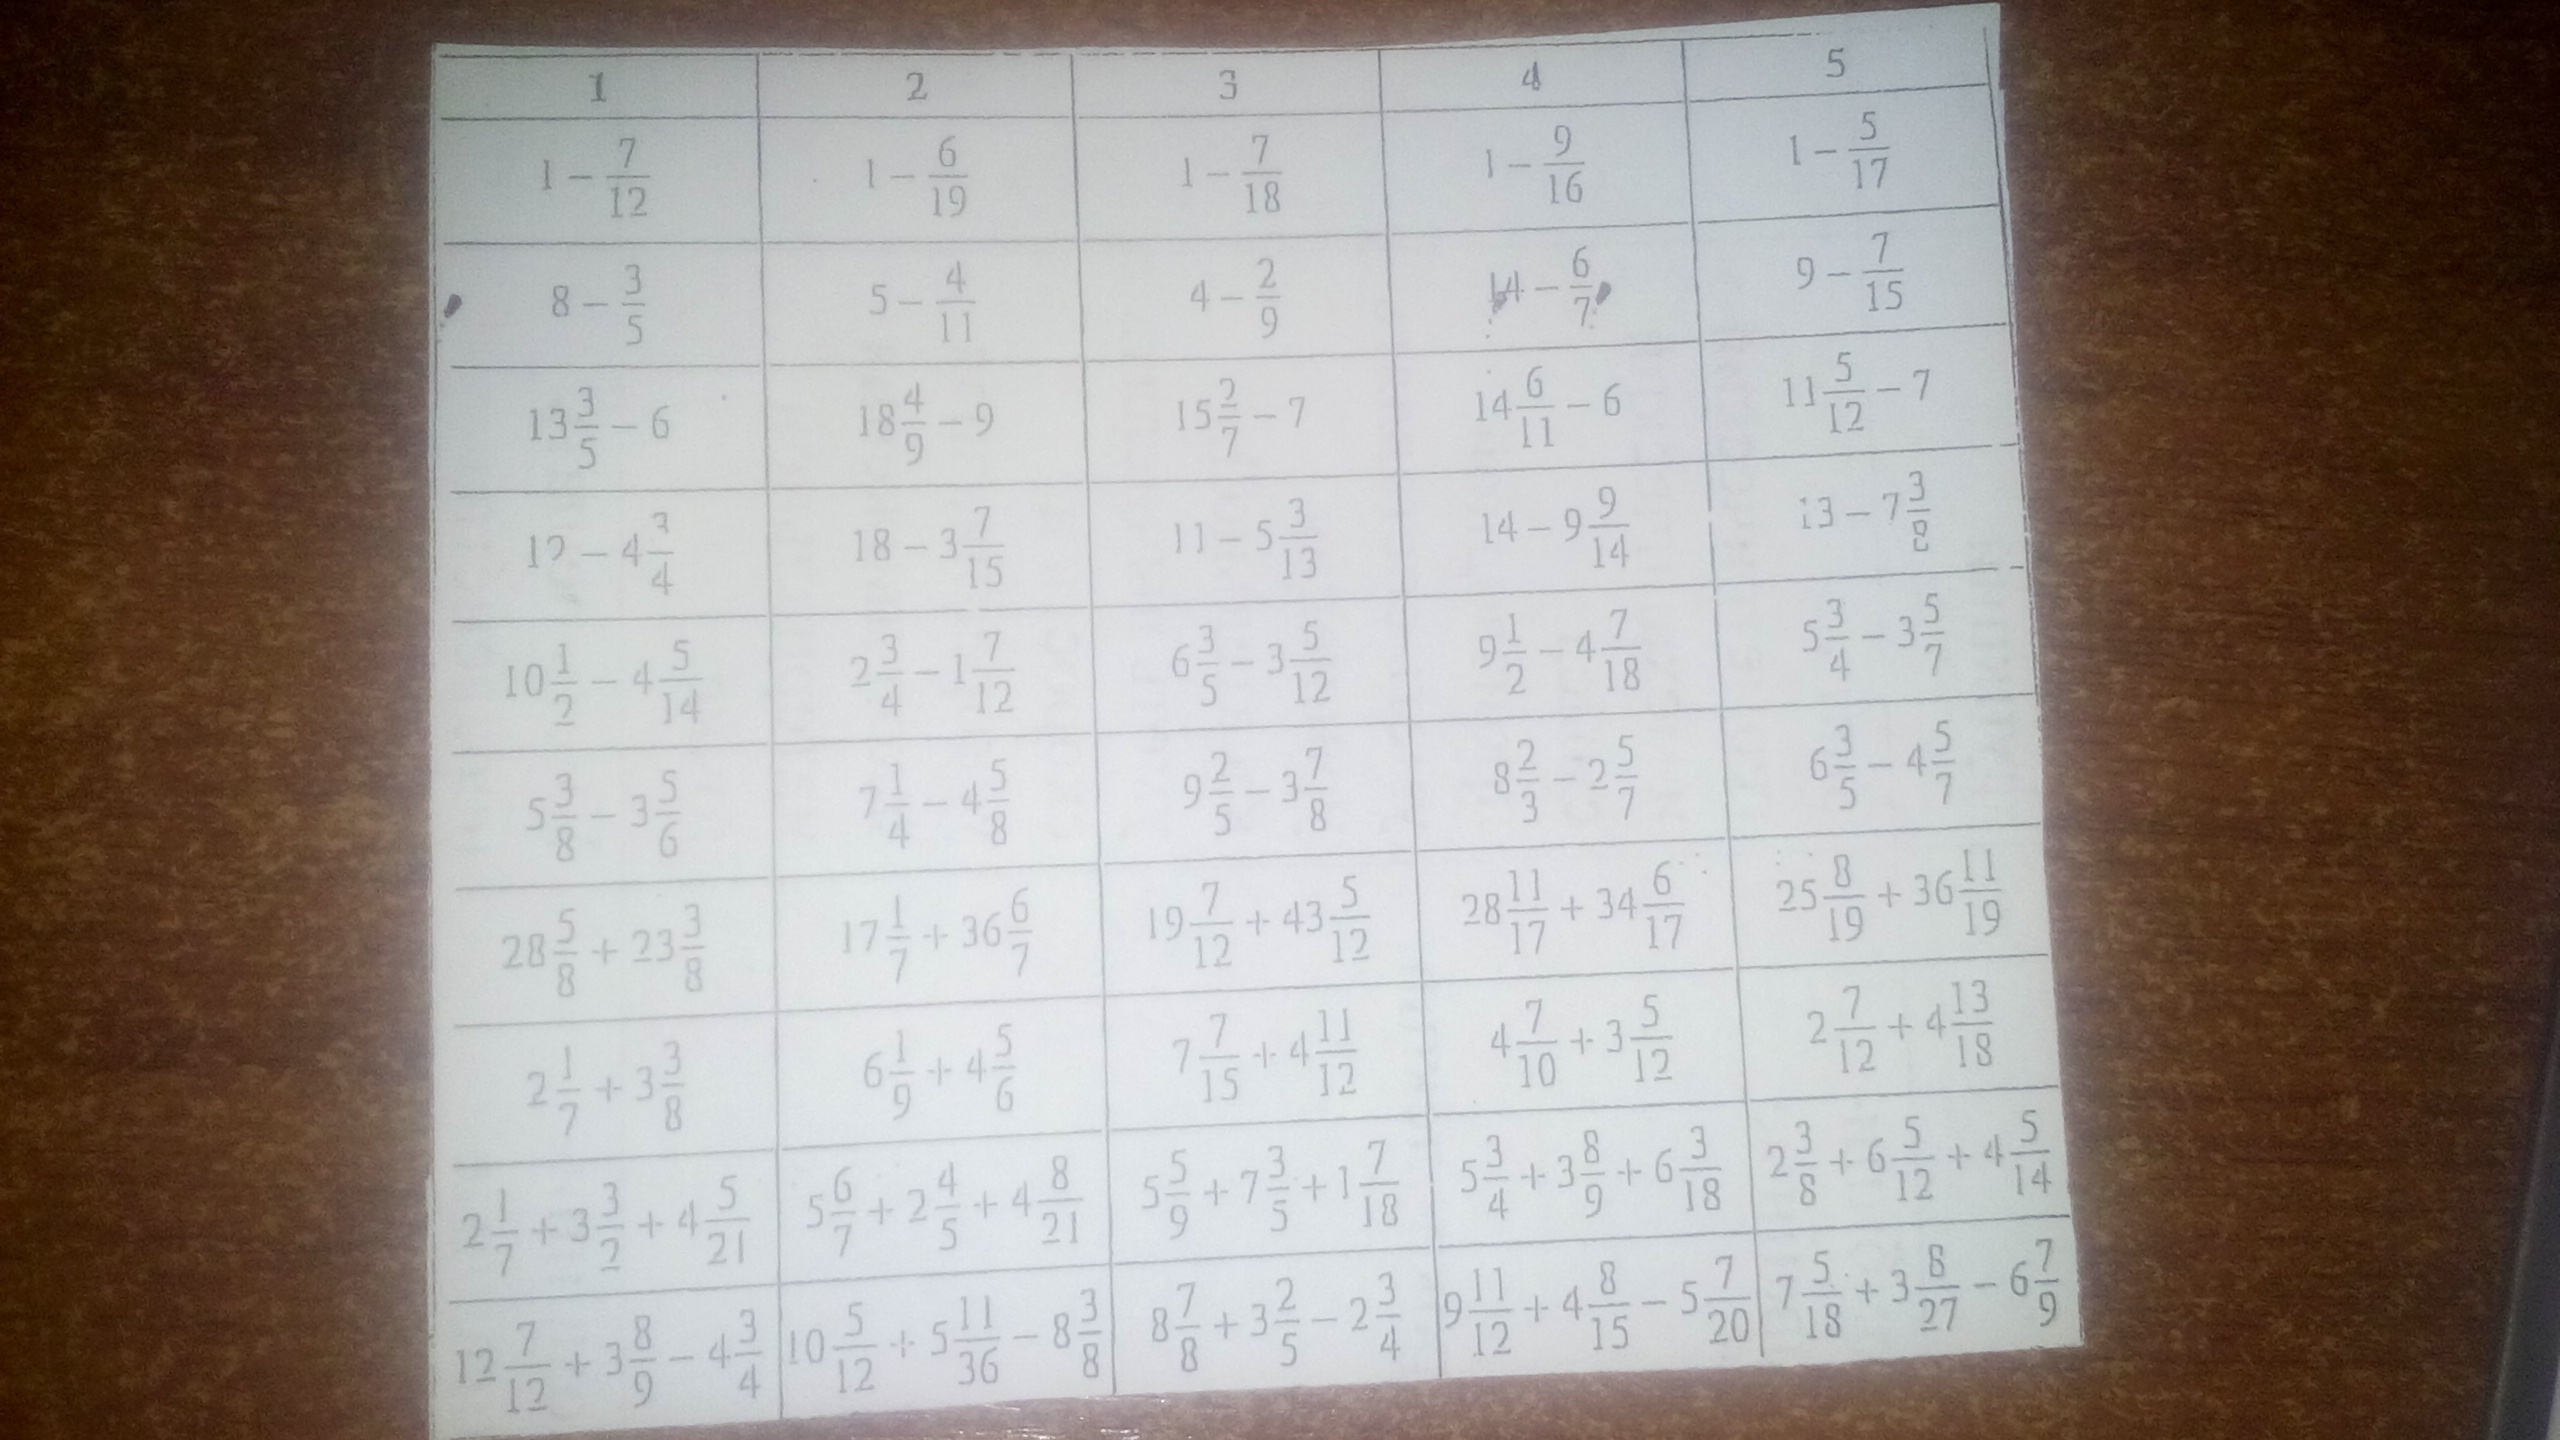 1 2 3 4 5
1 − 7/12 1 − 6/19 1 − 7/18 1 − 9/16 1 − 5/17
8 − 3/5 5 − 4/11 4 − 2/9 14 − 6/7 9 − 7/15
13 3/5 − 6 18 4/9 − 9 15 2/7 − 7 14 6/11 − 6 11 5/12 − 7
12 − 4 3/4 18 − 3 7/15 11 − 5 3/13 14 − 9 9/14 13 − 7 3/8
10 1/2 − 4 5/14 2 3/4 − 1 7/12 6 3/5 − 3 5/12 9 1/2 − 4 7/18 5 3/4 − 3 5/7
5 3/8 − 3 5/6 7 1/4 − 4 5/8 9 2/5 − 3 7/8 8 2/3 − 2 5/7 6 3/5 − 4 5/7
28 5/8 + 23 3/8 17 1/7 + 36 6/7 19 7/12 + 43 5/12 28 11/17 + 34 6/17 25 8/19 + 36 11/19
2 1/7 + 3 3/8 6 1/9 + 4 5/6 7 7/15 + 4 11/12 4 7/10 + 3 5/12 2 7/12 + 4 13/18
2 1/7 + 3 3/2 + 4 5/21 5 6/7 + 2 4/5 + 4 8/21 5 5/9 + 7 3/5 + 1 7/18 5 3/4 + 3 8/9 + 6 3/18 2 3/8 + 6 5/12 + 4 5/14
12 7/12 + 3 8/9 − 4 3/4 10 5/12 + 5 11/36 − 8 3/8 8 7/8 + 3 2/5 − 2 3/4 9 11/12 + 4 8/15 − 5 7/20 7 5/18 + 3 8/27 − 6 7/9